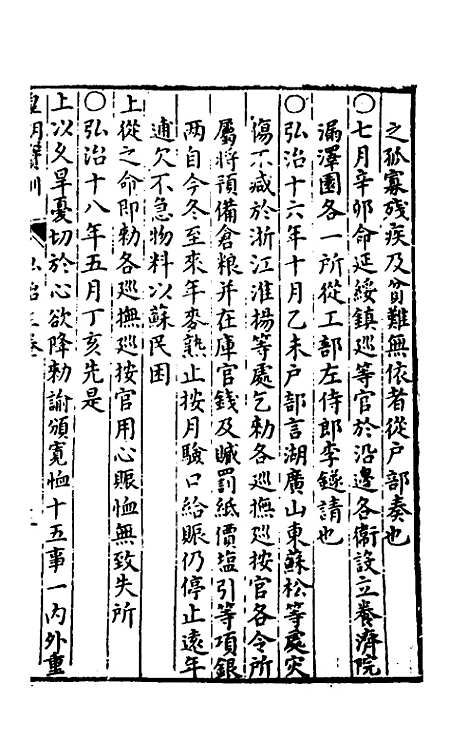 之孤寡殘疾及貧難無依者從戶部奏也
○七月辛卯命延綏鎮巡等官於沿邊各衛設立養濟院
漏澤園各一所從工部左侍郎李鐩請也
○弘治十六年十月乙未戶部言湖廣山東蘇松等處灾
傷不减於浙江淮揚等處乞勑各巡撫巡按官各令所
屬將預備倉粮并在庫官錢及贓罰紙價塩引等項銀
兩自今冬至來年麥熟止按月驗口給賑仍停止遠年
逋欠不急物料以蘇民困
上從之命即勑各巡撫巡按官用心賑恤無致失所
○弘治十八年五月丁亥先是
上以久旱憂切於心欲降勑諭頒寬恤十五事一內外重
皇明寶訓 弘治三卷